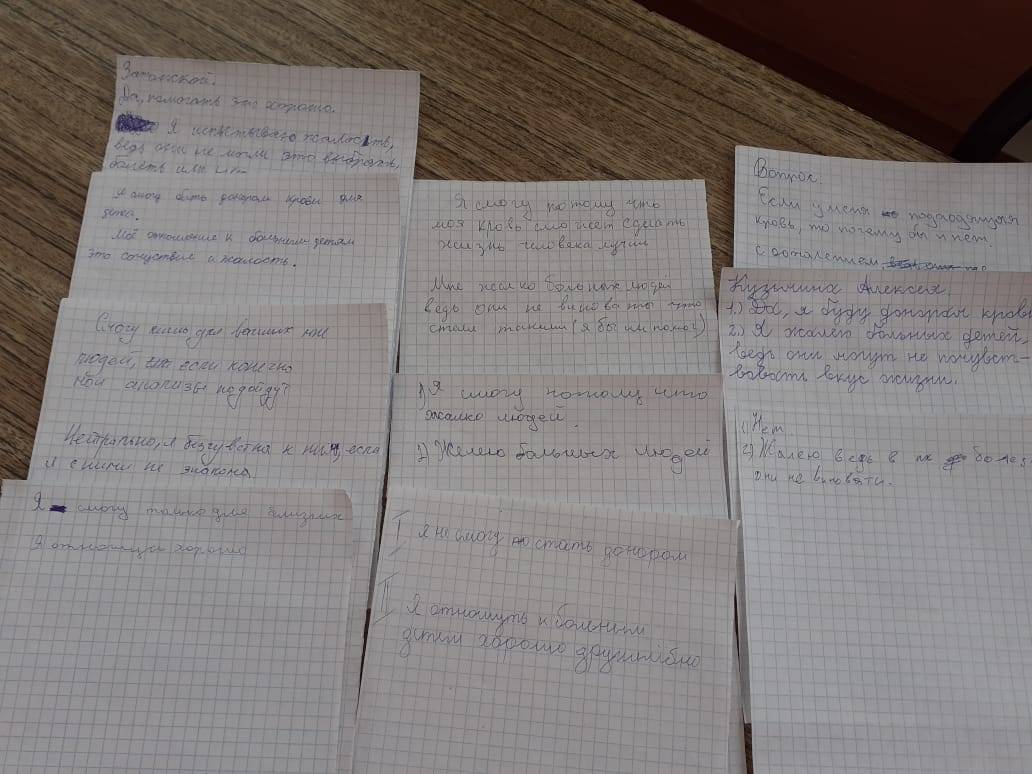 Да, помогать это хорошо.
Я испытываю жалость,
ведь они не могли это выбрать,
болеть или
Я смогу быть донором крови для
Моё отношение к больным детям
это сочуствие и жалость.
Смогу лишь для важных мне
людей, если конечно
мои анализы подойдут?
Нейтрально, я безчувственна к ним, если
я с ними не знакома.
Я смогу только для близких
Я отношусь хорошо
Я смогу потому что
моя кровь сможет сделать
жизнь человека лучше
Мне жалко больных людей
ведь они не виноваты что
стали такими (я бы им помог)
1) Я смогу потому что
жалко людей.
2) Жалею больных людей
I я не смогу стать донором
II Я отношуть к больним
детям хорошо дружелюбно
Вопрос.
Если у меня подходящая
кровь, то почему бы и нет.
с сожалением,
Алексей
1.) Да, я буду донорам крови
2.) Я жалею больных детей,
ведь они могут не почувст-
вовать вкус жизни.
1) Нет.
2) Жалею ведь в их
они не виноваты.